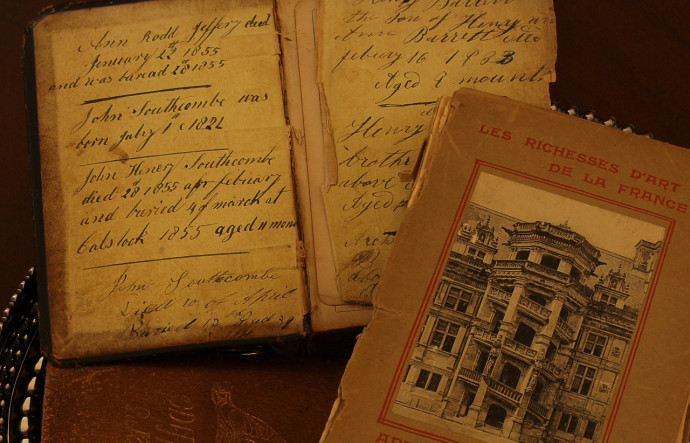 Ann Rodd Jeffery died
January 22 1855
and was buread 28 1855
John Southcombe was
born july 1 1822
John Henery Southcombe
died 28 1855 apr febuary
and buried 4 march at
Calstock 1855 aged 11 mon
John Southcombe
Died 10 of April
Buried
the Son of Henry an
Ann Barrett
febury 16 1833
Aged 9 mounth
Henry
brothe
above
Aged
abo
LES RICHESSES D'ART
DE LA FRANCE